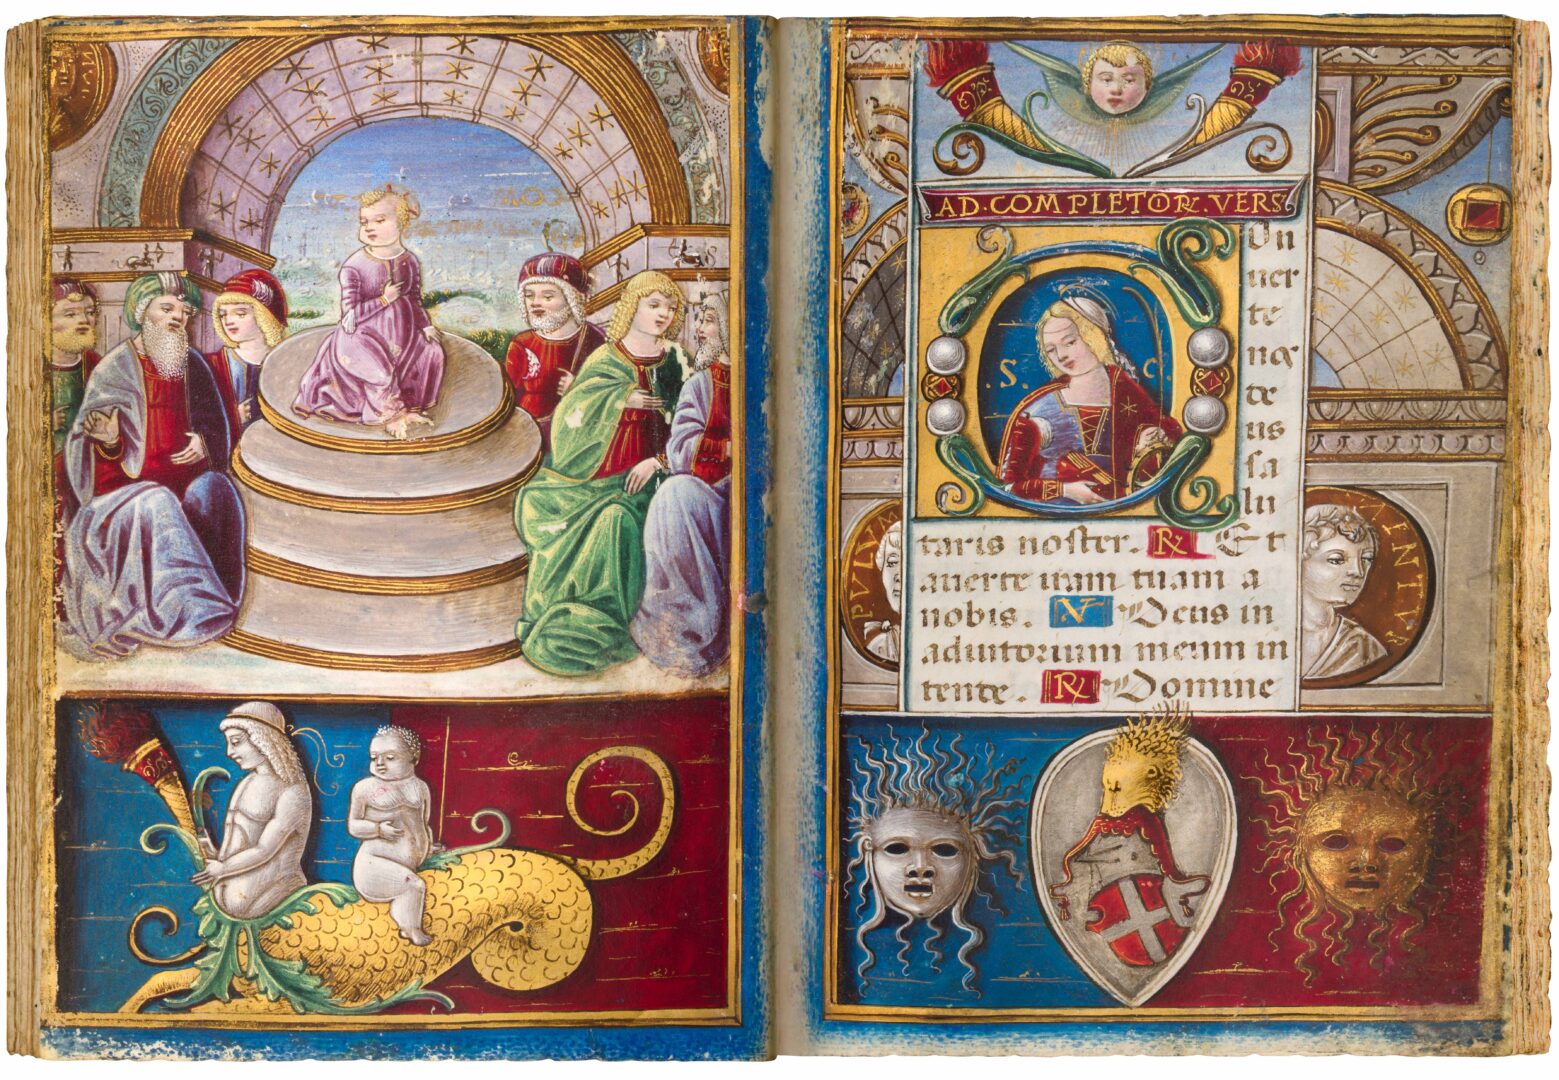 AD·COMPLETOꝜ VERS
COn
uer
te
nos
de
us
sa
lu
·S· C
taris noster. ℞ Et
auerte iram tuam a
nobis. ℣ Deus in
adiutorium meum in
tende. ℞ Domine